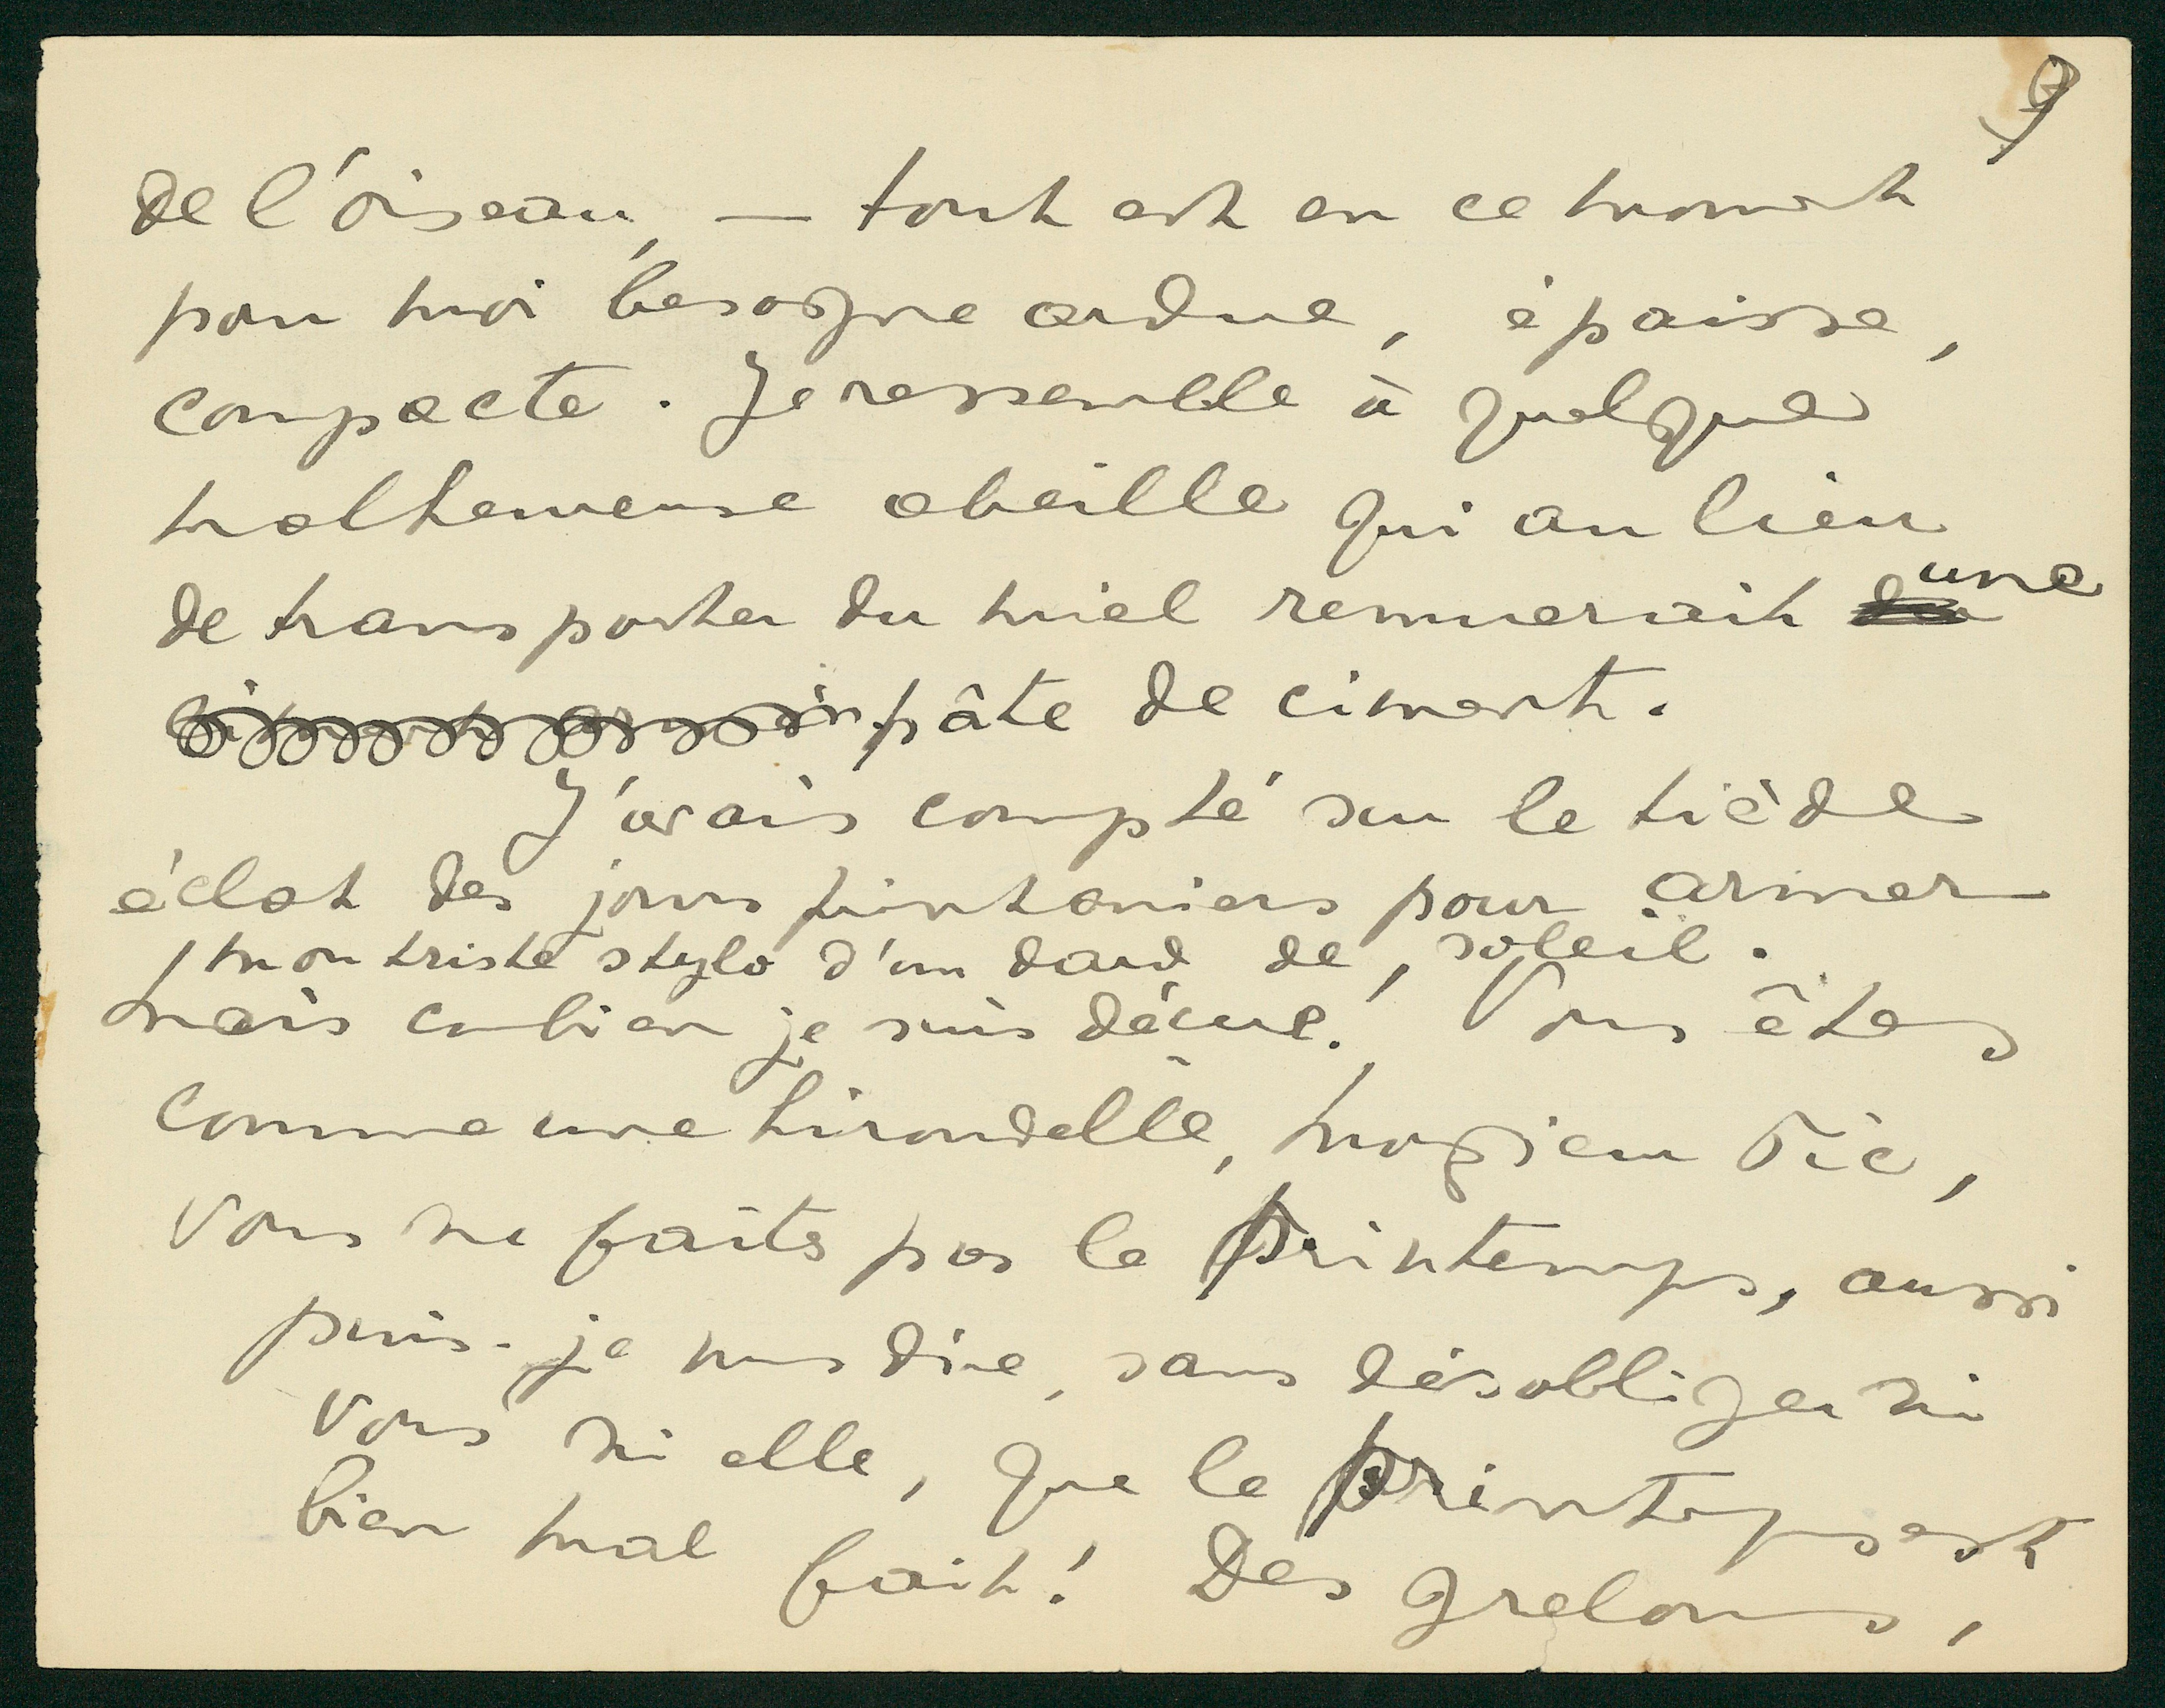 9
de l'oiseau, — tout est en ce moment
pour moi besogne ardue, épaisse,
compacte. Je ressemble à quelque
malheureuse abeille qui au lieu
de transporter du miel remuerait une
pâte de ciment.
J'avais compté sur le tiède
éclat des jours printaniers pour armer
mon triste stylo d'un dard de soleil.
mais combien je suis déçue! Vous êtes
comme une hirondelle, magicien
vous ne faites pas le Printemps, aussi
puis-je vous dire, sans désobliger ni
vous ni elle, que le Printemps est
bien mal fait! Des grelons,